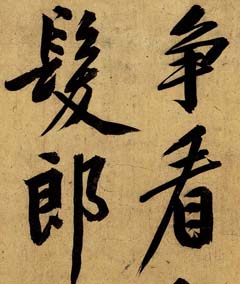 争看
髮郎